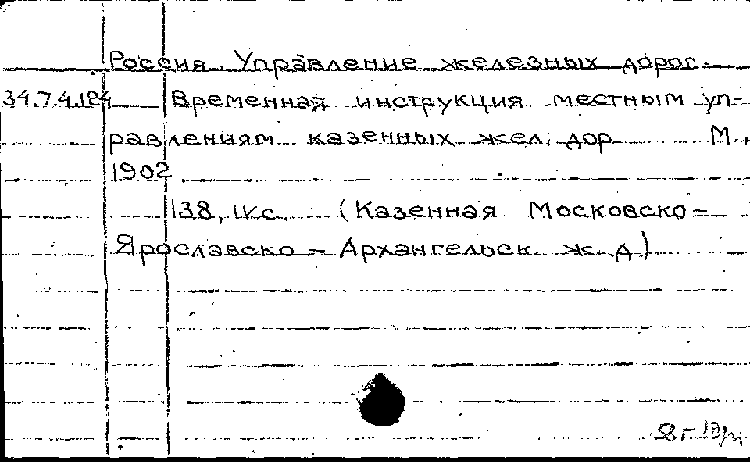 Россия. Управление железных дорог.
34.7.4.184 Временная инструкция местным уп-
равлениям казенных жел. дор М.,
1902
138, IV с. (Казенная Московско-
Ярославско-Архангельск ж. д)